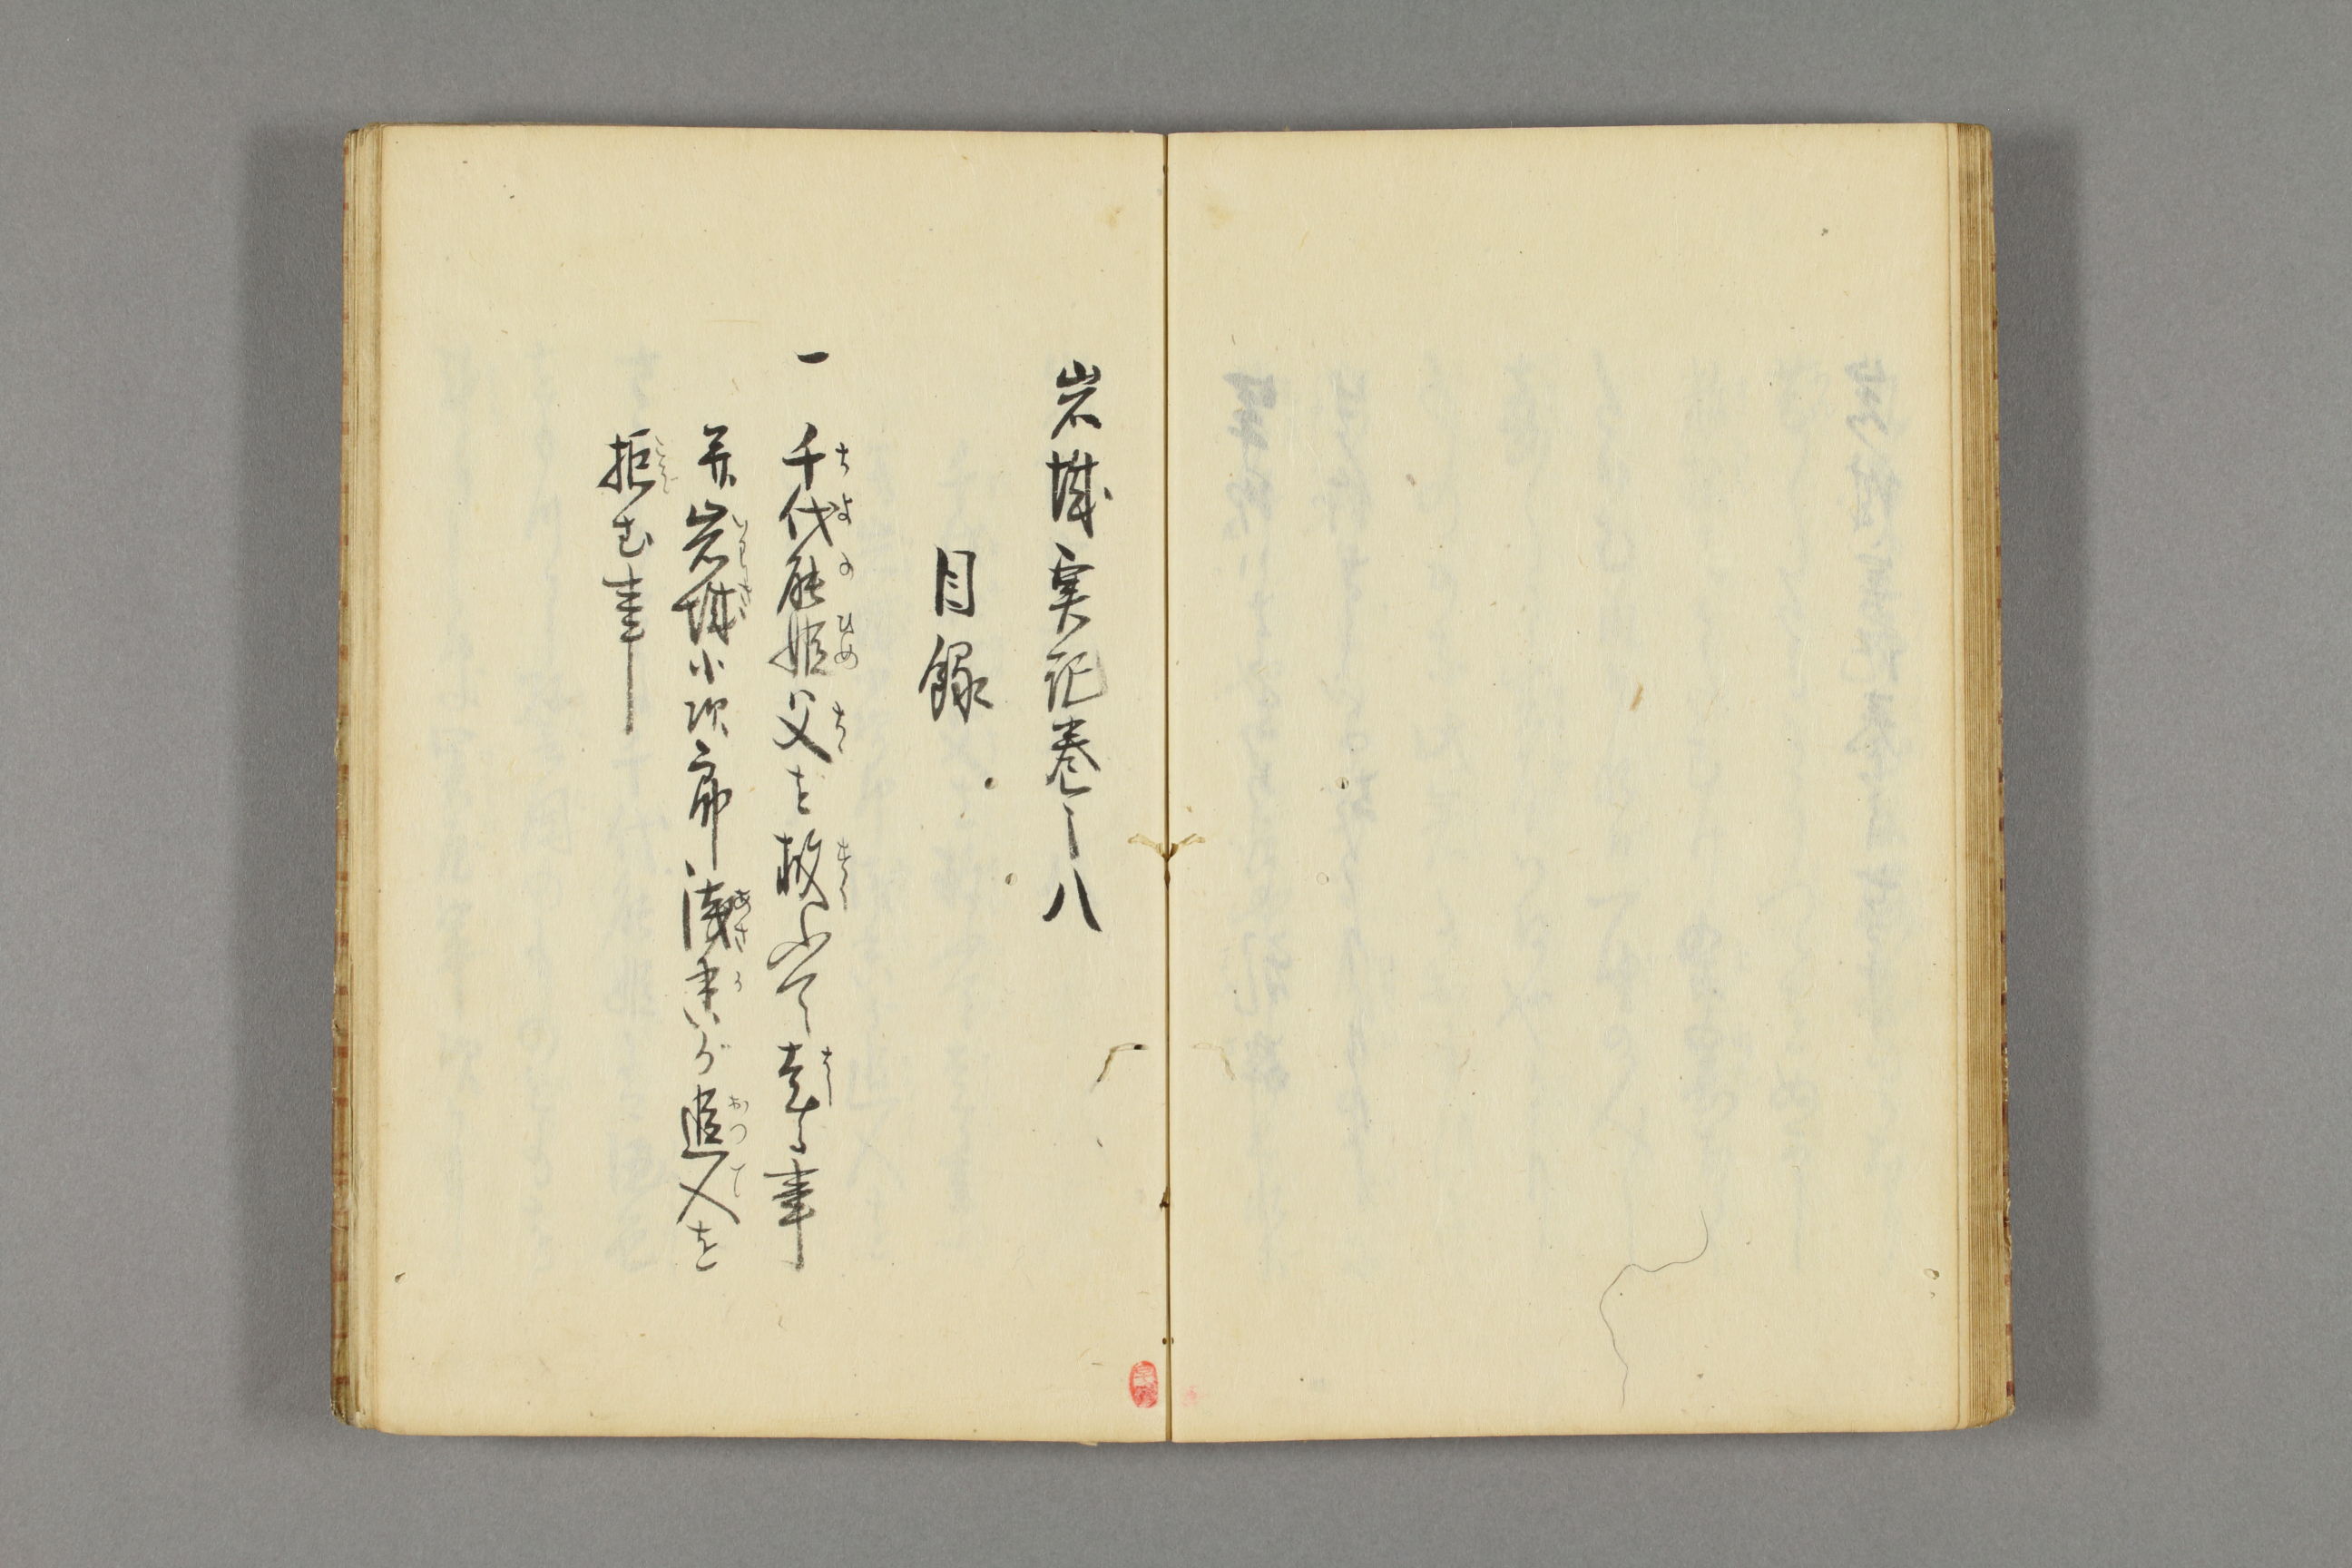 岩城実記巻之八
目録
一 千代能姫父を救ふて走る事
并岩城小次郎浅香が追人を
拒む事